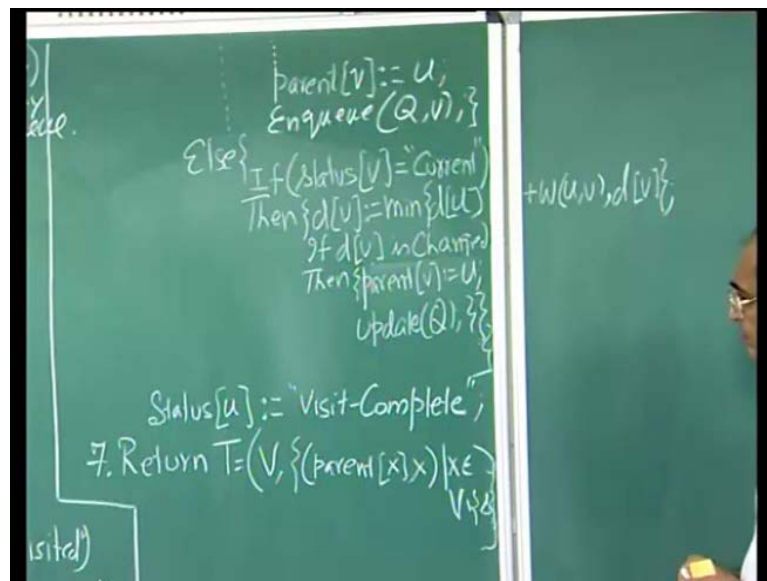 parent[v]:= u;
Enqueue(Q,v);}
Else{
If(status[v]="Current")
Then{d[v]:=min{d[u] +w(u,v),d[v]};
If d[v] is Changed
Then{parent[v]:=u;
update(Q);}}
}
Status[u]:="Visit-Complete";
7. Return T=(V,{(parent[x],x)|x∈
isited)